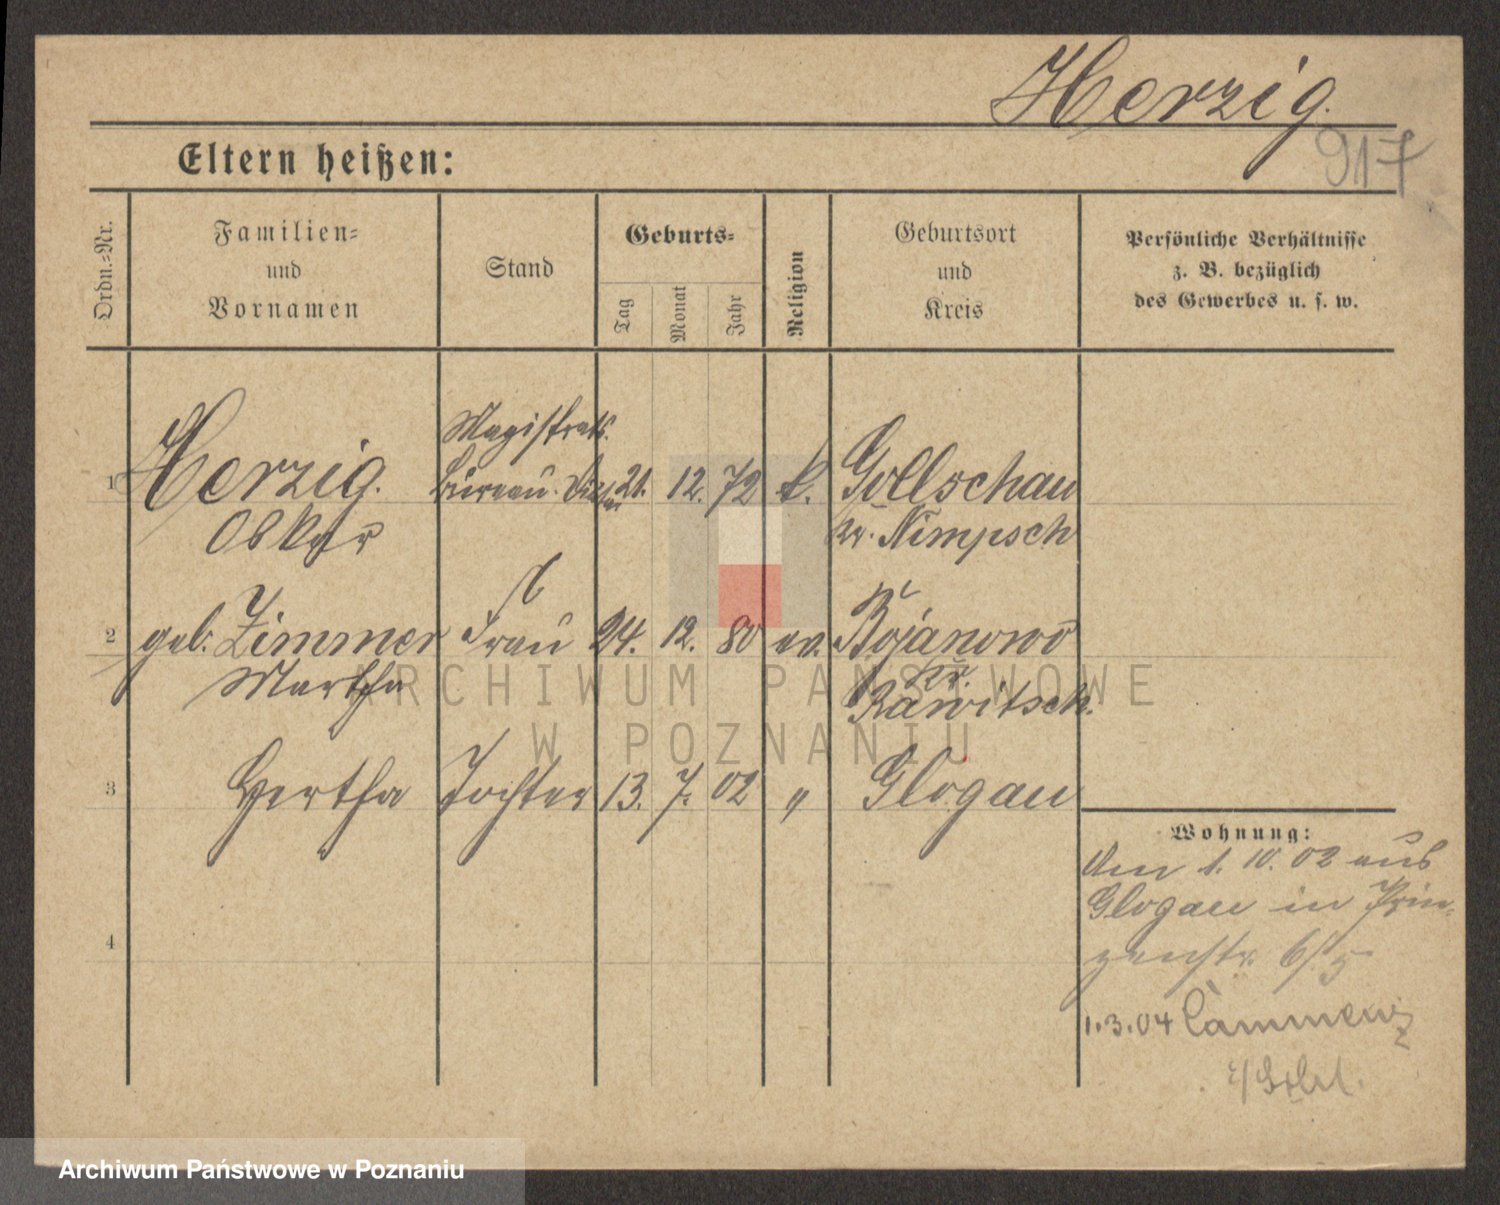 Herzig.
917
Eltern heißen:
Ordn.-Nr.
Familien-
und
Vornamen
Stand
Geburts-
Tag
Monat
Jahr
Religion
Geburtsort
und
Kreis
Persönliche Verhältnisse
z. B. bezüglich
des Gewerbes u. s. w.
Magistrats.
1 Herzig. Büreau. 21. 12. 72 k. Gollschau
Oskar Kr. Nimpsch
2 geb. Zimmer Frau 24. 12. 80 ev. Bojanowo
Martha Kr.
Rawitsch.
3 Hertha Tochter 13. 7. 02 " Glogau
Wohnung:
Am 1. 10. 02 aus
Glogau in Prin-
zenstr. 6/5
4
1.3.04
ARCHIWUM PAŃSTWOWE
W POZNANIU
Archiwum Państwowe w Poznaniu